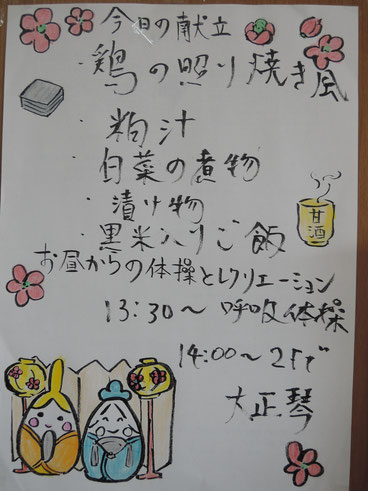 今日の献立
・鶏の照り焼き風
・粕汁
・白菜の煮物
・漬け物
・黒米入りご飯
甘酒
お昼からの体操とレクリエーション
13:30～呼吸体操
14:00～2Fで
大正琴